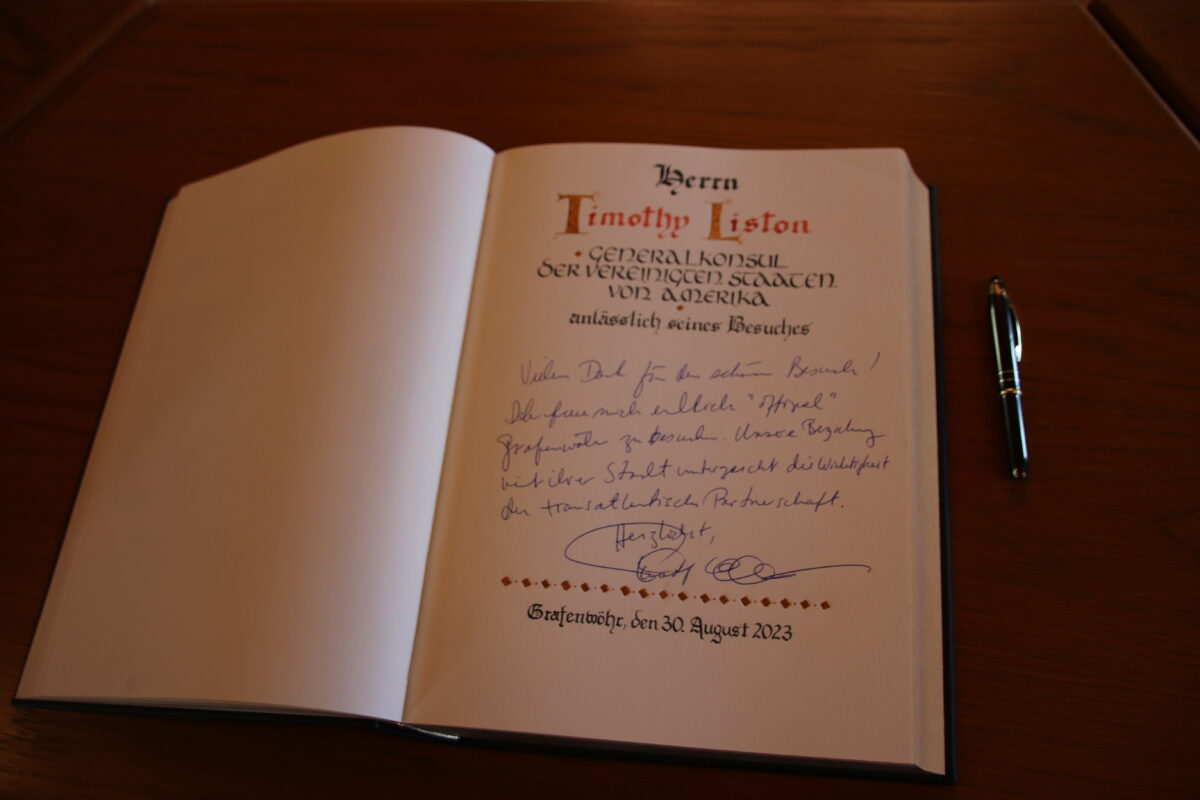 Herrn
Timothy Liston
GENERALKONSUL
DER VEREINIGTEN STAATEN
VON AMERIKA
anlässlich seines Besuches
Vielen Dank für den schönen Besuch!
Ich freue mich endlich "offiziel"
Grafenwöhr zu besuchen. Unsere Beziehung
mit ihrer Stadt unterstreicht die Wichtigkeit
der transatlantische Partnerschaft.
Herzlichst,
Grafenwöhr, den 30. August 2023